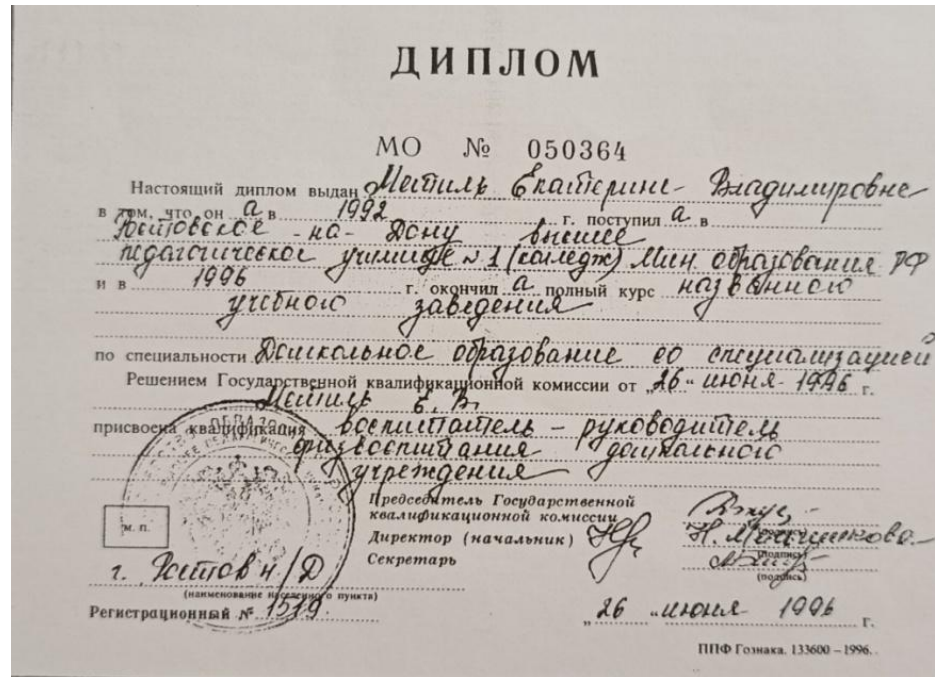 ДИПЛОМ
МО № 050364
Настоящий диплом выдан Екатерине Владимировне
в том, что он а в 1992 г. поступил а в
Ростовское -на- Дону высшее
педагогическое училище №1 (колледж) Мин. образования РФ
и в 1996 г. окончил а полный курс названного
учебного заведения
по специальности Дошкольное образование со специализацией
Решением Государственной квалификационной комиссии от „26" июня 1996 г.
Е. В.
присвоена квалификация воспитатель – руководитель
физвоспитания дошкольного
учреждения
Председатель Государственной
квалификационной комиссии
Директор (начальник)
(подпись)
Секретарь
(подпись)
м. п.
г. Ростов н/Д
(наименование населенного пункта)
Регистрационный № 1519
„26" июня 1996 г.
ППФ Гознака. 133600 – 1996.